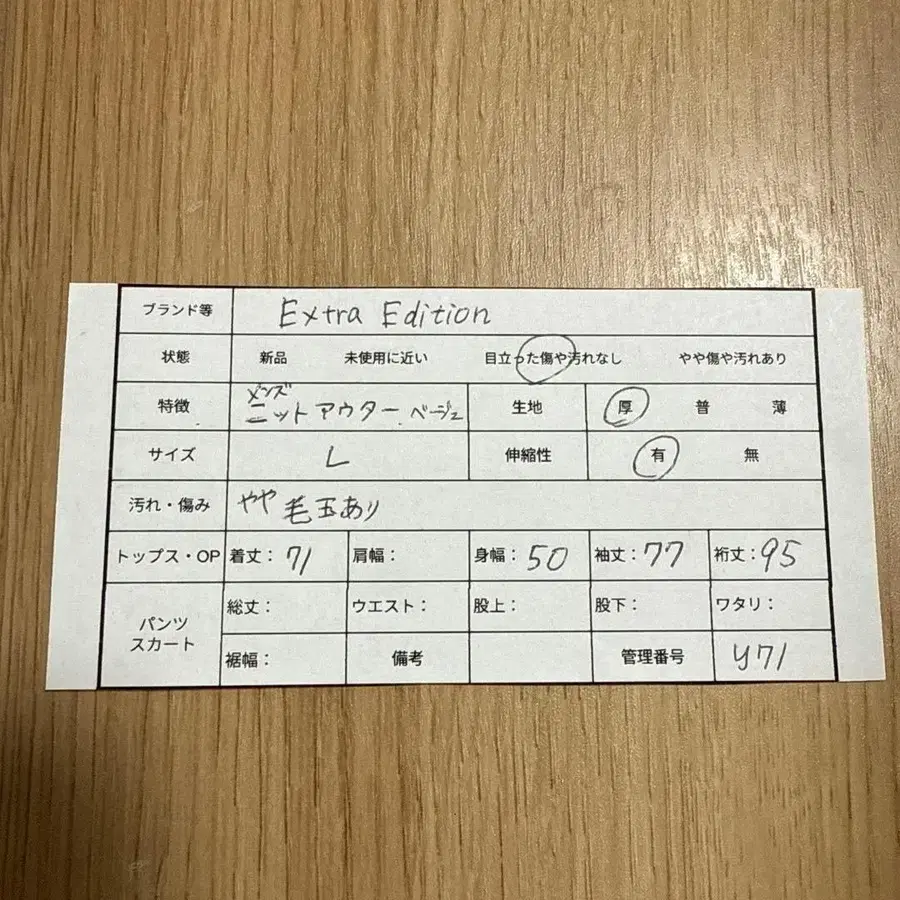 ブランド等 Extra Edition
状態 新品 未使用に近い 目立った傷や汚れなし やや傷や汚れあり
特徴 メンズ ニットアウター ベージュ 生地 厚 普 薄
サイズ L 伸縮性 有 無
汚れ・傷み やや毛玉あり
トップス・OP 着丈：71 肩幅： 身幅：50 袖丈：77 裄丈：95
パンツ スカート 総丈： ウエスト： 股上： 股下： ワタリ：
裾幅： 備考 管理番号 y71